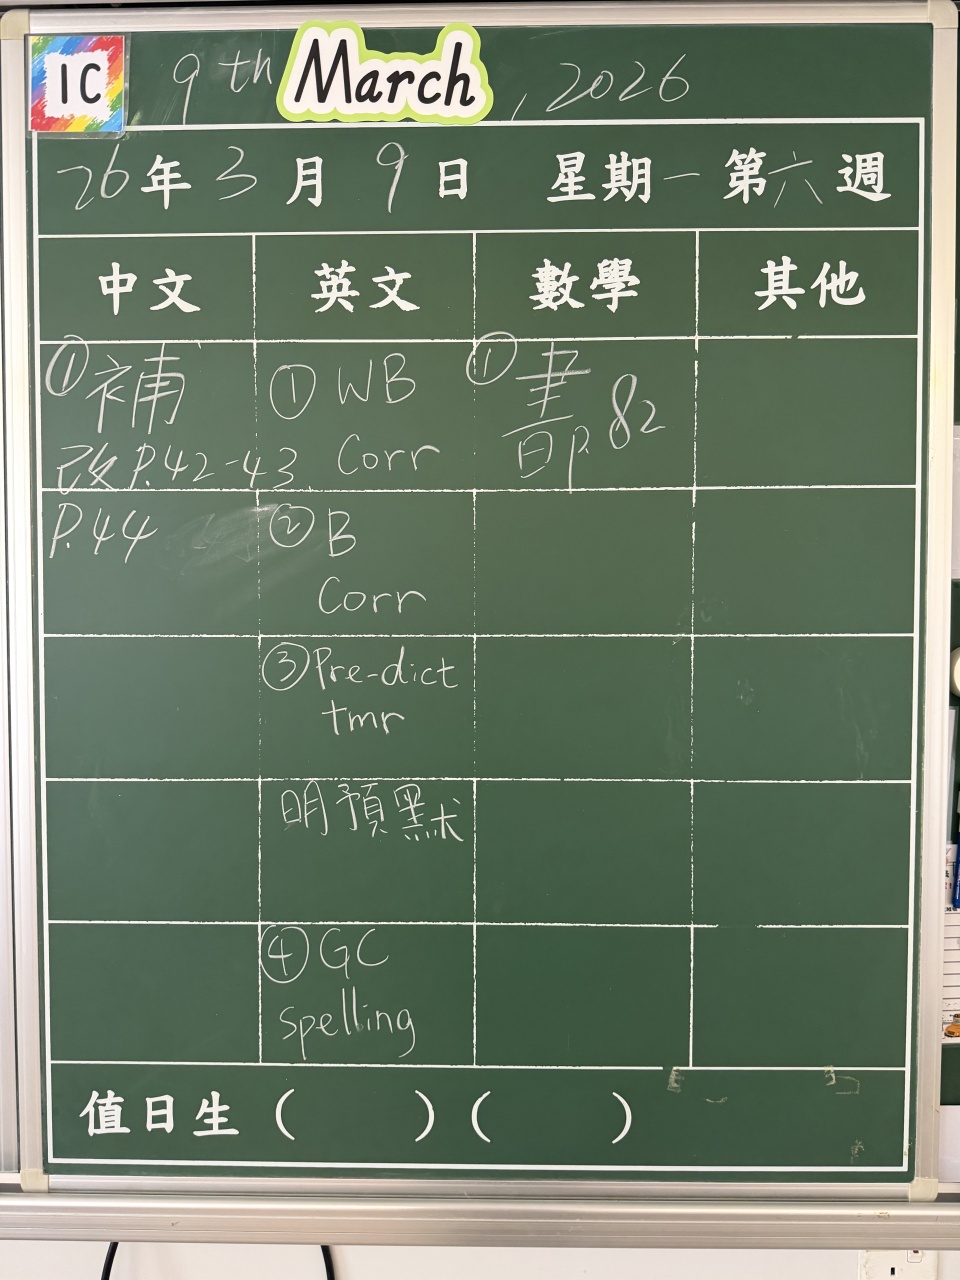 1C 9th March, 2026
26年3月9日 星期一 第六週
中文 英文 數學 其他
①補
改P.42-43
P.44
①WB
Corr
②B
Corr
③Pre-dict
tmr
明預默
④GC
spelling
①書P.82
值日生 ( ) ( )